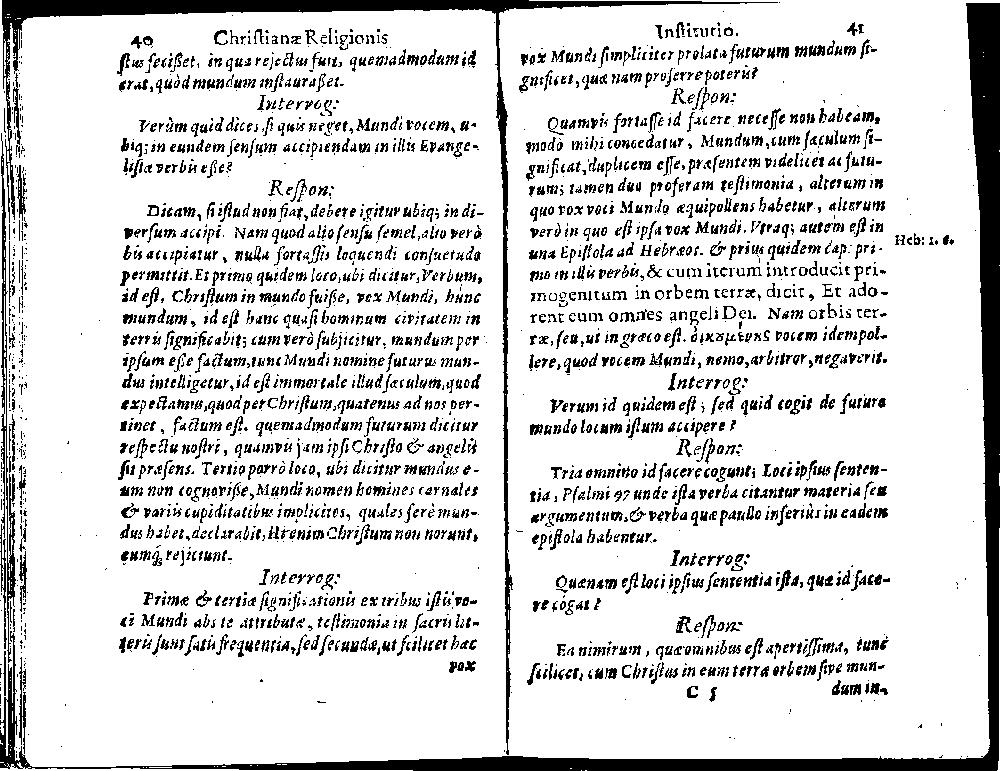 40 Christianæ Religionis
stus fecisset, in qua rejectus fuit, quemadmodum id
erat, quòd mundum instaurasset.
Interrog:
Verùm quid dices, si quis neget, Mundi vocem, u-
biq; in eundem sensum accipiendam in illis Evange-
listæ verbis esse?
Respon:
Dicam, si istud non fiat, debere igitur ubiq; in di-
versum accipi. Nam quod alio sensu semel, alio verò
bis accipiatur, nulla fortassis loquendi consuetudo
permittit. Et primo quidem loco, ubi dicitur, Verbum,
id est, Christum in mundo fuisse, vox Mundi, hunc
mundum, id est hanc quasi hominum civitatem in
terris significabit; cum verò subjicitur, mundum per
ipsum esse factum, tunc Mundi nomine futurus mun-
dus intelligetur, id est immortale illud sæculum, quod
expectamus, quod per Christum, quatenus ad nos per-
tinet, factum est. quemadmodum futurum dicitur
respectu nostri, quamvis jam ipsi Christo & angelis
sit præsens. Tertio porrò loco, ubi dicitur mundus e-
um non cognovisse, Mundi nomen homines carnales
& variis cupiditatibus implicitos, quales ferè mun-
dus habet, declarabit, Hi enim Christum non norunt,
eumq; rejiciunt.
Interrog:
Primæ & tertiæ significationis ex tribus istis vo-
ci Mundi abs te attributæ, testimonia in sacris lit-
teris sunt satis frequentia, sed secundæ, ut scilicet hæc
vox
Institutio. 41
vox Mundi simpliciter prolata futurum mundum si-
gnificet, quæ nam proferre poteris?
Respon:
Quamvis fortasse id facere necesse non habeam,
modò mihi concedatur, Mundum, cum sæculum si-
gnificat, duplicem esse, præsentem videlicet ac futu-
rum; tamen duo proferam testimonia, alterum in
quo vox voci Mundo æquipollens habetur, alterum
verò in quo est ipsa vox Mundi. Utraq; autem est in
una Epistola ad Hebræos. & prius quidem cap: pri-
Heb: 1. 6.
mo in illis verbis, & cum iterum introducit pri-
mogenitum in orbem terræ, dicit, Et ado-
rent eum omnes angeli Dei. Nam orbis ter-
ræ, seu, ut in græco est. ὀικουμένης vocem idem pol-
lere, quod vocem Mundi, nemo, arbitror, negaverit.
Interrog:
Verum id quidem est; sed quid cogit de futuro
mundo locum istum accipere?
Respon:
Tria omnino id facere cogunt; Loci ipsius senten-
tia, Psalmi 97 unde ista verba citantur materia seu
argumentum, & verba quæ paullo inferiùs in eadem
epistola habentur.
Interrog:
Quænam est loci ipsius sententia ista, quæ id face-
re cogat?
Respon:
Ea nimirum, quæ omnibus est apertissima, tunc
scilicet, cum Christus in eum terræ orbem sive mun-
C 5 dum in-